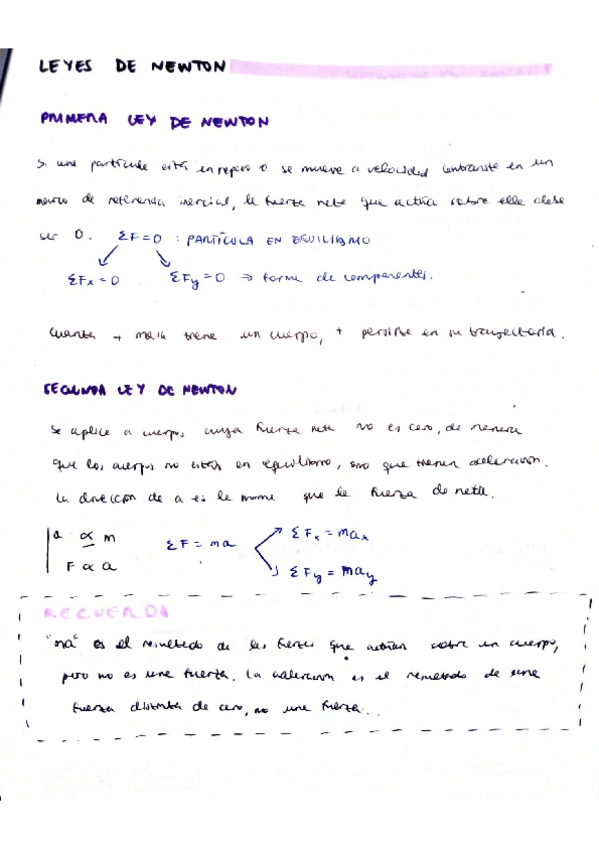 LEYES DE NEWTON
PRIMERA LEY DE NEWTON
Si una partícula está en reposo o se mueve a velocidad constante en un
marco de referencia inercial, la fuerza neta que actúa sobre ella debe
ser 0. ΣF=0 : PARTÍCULA EN EQUILIBRIO
ΣFx=0 ΣFy=0 → forma de componentes.
Cuanta + masa tiene un cuerpo, + persiste en su trayectoria.
SEGUNDA LEY DE NEWTON
Se aplica a cuerpos cuya fuerza neta no es cero, de manera
que los cuerpos no están en equilibrio, sino que tienen aceleración.
La dirección de a es la misma que la fuerza de neta.
a ∝ m
F ∝ a
ΣF = ma
ΣFx = max
ΣFy = may
RECUERDA
"ma" es el resultado de las fuerzas que actúan sobre un cuerpo,
pero no es una fuerza. La aceleración es el resultado de una
fuerza distinta de cero, no una fuerza.